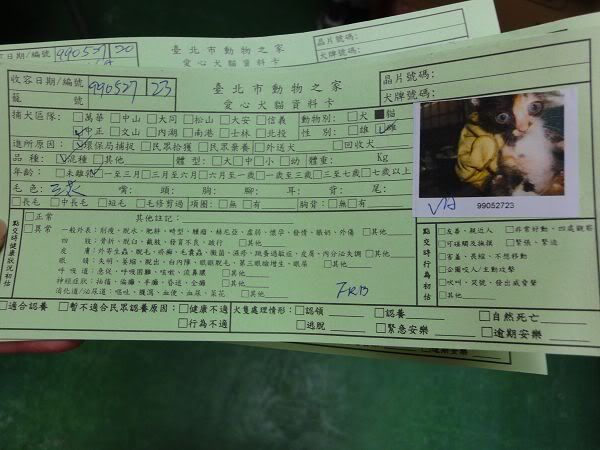 容日期/編號 990527 20
臺北市動物之家
愛心犬貓資料卡
晶片號碼:
犬牌號碼:
收容日期/編號 990527 23
籠 號
臺北市動物之家
愛心犬貓資料卡
晶片號碼:
犬牌號碼:
捕犬區隊: □萬華 □中山 □大同 □松山 □大安 □信義 動物別: □犬 ■貓
☑中正 □文山 □內湖 □南港 □士林 □北投 性 別: □雄 ☑雌
進所原因: ☑環保局捕捉 □民眾拾獲 □民眾棄養 □外送犬 □回收犬
品種: ☑混種 □其他 體型: □大 □中 □小 □幼 體重: Kg
年齡: □未離乳 □一至三月 □三至六月 □六月至一歲 □一歲至三歲 □三至七歲 □七歲以上
毛色: 三花 嘴: 頭: 胸: 腳: 耳: 背: 尾:
□長毛 □中長毛 □短毛 □毛修剪過 項圈: □無 □有: 胸背: □無 □有:
99052723
點交時健康狀況初估
□正常 其他註記:
□異常
一般外表: 削瘦、脫水、肥胖、畸型、腫瘤、絲毛亞、虛弱、懷孕、發情、眼奶、外傷 □其他
四 肢: 骨折、脫臼、截肢、發育不良、跛行 □其他
皮 膚: 外寄生蟲、脫毛、疥癬、毛囊蟲、黴菌、濕疹、跳蚤過敏症、皮屑、內分泌失調 □其他
眼 睛: 失明、萎縮、脫出、白內障、眼瞼脫毛、第三眼瞼增生、眼屎 □其他
呼 吸 道: 急促、呼吸困難、咳嗽、流鼻膿 □其他
神經症狀: 抽搐、偏癱、半癱、昏迷、全癱 □其他
消化道/泌尿道: 嘔吐、腹瀉、血便、血尿、茶花 □其他
7RB
點交時行為初估
□友善、親近人 □非常好動、四處觀察
□可碰觸及撫摸 □緊張、緊迫
□害羞、長縮、不想移動
□企圖咬人/主動攻擊
□吠叫、哭號、發出威脅聲
□其他
□適合認養 □暫不適合民眾認養原因: □健康不適 犬隻處理情形: □認領 □認養 □自然死亡
□行為不適 □逃脫 □緊急安樂 □逾期安樂
□緊急安樂